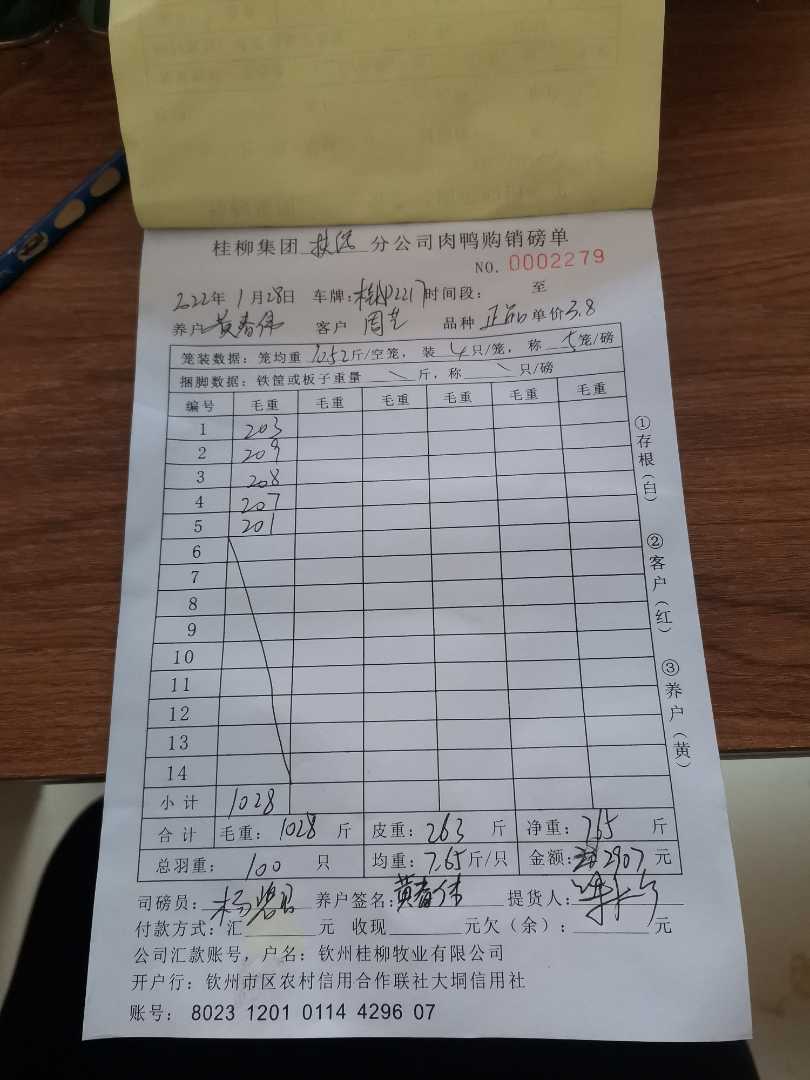 桂柳集团 扶绥 分公司肉鸭购销磅单
NO. 0002279
2022年1月28日 车牌: 时间段: 至
养户 黄春伟 客户 周 品种 正品 单价3.8
笼装数据: 笼均重 10.52斤/空笼, 装 4只/笼, 称 5笼/磅
捆脚数据: 铁筐或板子重量 \ 斤, 称 \ 只/磅
编号 毛重 毛重 毛重 毛重 毛重 毛重
1 203
2 209
3 208
4 207
5 201
6
7
8
9
10
11
12
13
14
小计 1028
合计 毛重: 1028 斤 皮重: 263 斤 净重: 765 斤
总羽重: 100 只 均重: 7.65斤/只 金额: 2907元
①存根(白)
②客户(红)
③养户(黄)
司磅员: 杨 养户签名: 黄春伟 提货人:
付款方式: 汇 元 收现 元欠(余): 元
公司汇款账号, 户名: 钦州桂柳牧业有限公司
开户行: 钦州市区农村信用合作联社大垌信用社
账号: 8023 1201 0114 4296 07